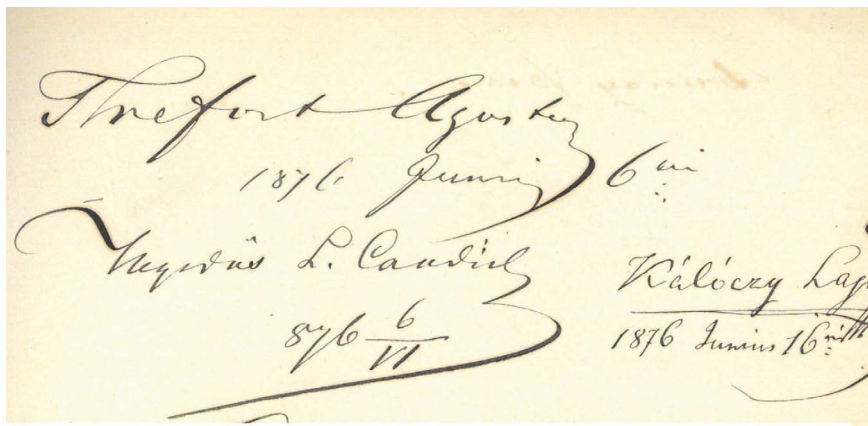 Trefort Agoston
1876 Junius 6án
Hegedüs L. Candid
876 6/VI
Kálóczy Laj
1876 Junius 16án